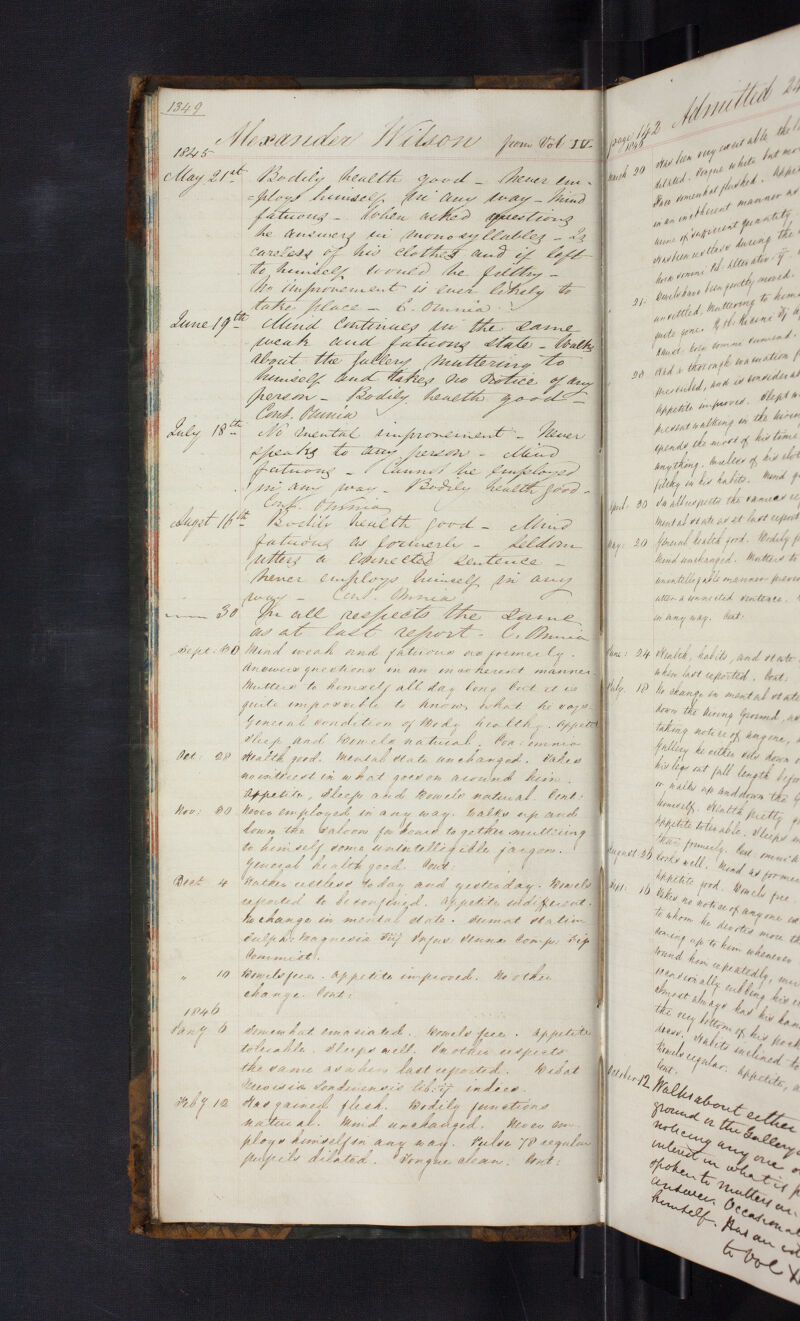 1349
Alexander Wilson from Vol IV
1845
May 21st Bodily health good – Never em-
=ploys himself in any way – Mind
fatuous – When asked questions
he answers in monosyllables – Is
careless of his clothes and if left
to himself would be filthy –
No improvement is ever likely to
take place – C. Omnia
June 19th Mind continues in the same
weak and fatuous state – Walks
about the gallery muttering to
himself and takes no notice of any
person – Bodily health good –
Cont. Omnia
July 18th No mental improvement – Never
speaks to any person – Mind
fatuous – Cannot be employed
in any way – Bodily health good –
Cont. Omnia
Augst 16th Bodily health good – Mind
fatuous as formerly – Seldom
utters a connected sentence –
Never employs himself in any
way – Cont. Omnia
30 In all respects the same
as at last report – C. Omnia
Sept: 30 Mind weak and fatuous as formerly.
Answers questions in an incoherent manner.
Mutters to himself all day long but it is
quite impossible to know what he says.
General condition of Body healthy. Appetite
Sleep and Bowels natural. Con: omnia
Oct: 28 Health good. Mental state unchanged. Takes
no interest in what goes on around him.
Appetite, Sleep and Bowels natural. Cont:
Nov: 30 Never employed in any way. Walks up and
down the Saloon for hours together muttering
to himself some unintelligible jargon.
General health good. Cont:
Decr 4 Rather restless today and yesterday. Bowels
reported to be confined. Appetite indifferent.
No change in mental state. Sumat statim
Sulph: Magnesia Infus: Senna Comp:
" 10 Bowels free. Appetite improved. No other
change. Cont:
1846
Jany 6 Somewhat emaciated. Bowels free. Appetite
tolerable. Sleeps well. In other respects
the same as when last reported. Bibat
Cerevisia Londinensis indies.
Feby 12 Has gained flesh. Bodily functions
natural. Mind unchanged. Never em-
ploys himself in any way. Pulse 78 regular
pupils dilated. Tongue clean. Cont:
page 142 Admitted 24
1846
March 20 Has been very excitable the
dilated. Tongue white but
Face somewhat flushed.
in an incoherent manner
21.
unsettled. Muttering to
28 Had a thorough evacuation
appetite improved. Sleeps
present walking in the Airing
spends the most of his time
anything. Careless of his
filthy in his habits. Mind
April: 20 In all respects the same as
Mental state as at last report
May: 20 General health good. Bodily
Mind unchanged. Mutters to
unintelligible manner
utter a connected sentence.
in any way. Cont:
June: 24 Health, habits, and state
when last reported. Cont:
July. 18 No change in mental state
down the Airing Ground,
taking notice of anyone,
Gallery he either sits down
his legs out full length before
or walks up and down the
himself. Health pretty
Appetite tolerable. Sleeps
than formerly. Cont. omnia
August 26 Looks well. Mind as former
Appetite good. Bowels free
Sept: 16 Takes no notice of anyone
to whom he devotes more
coming up to him whenever
round him repeatedly,
occasionally rubbing his
almost always has his
the very bottom of his
dress. Habits inclined to
Bowels regular. Appetite,
Cont.
October 12 Walks about either
ground or the Gallery
noticing any one
interest in what is
spoken to mutters
answer. Occasional
himself. Has an
to Vol